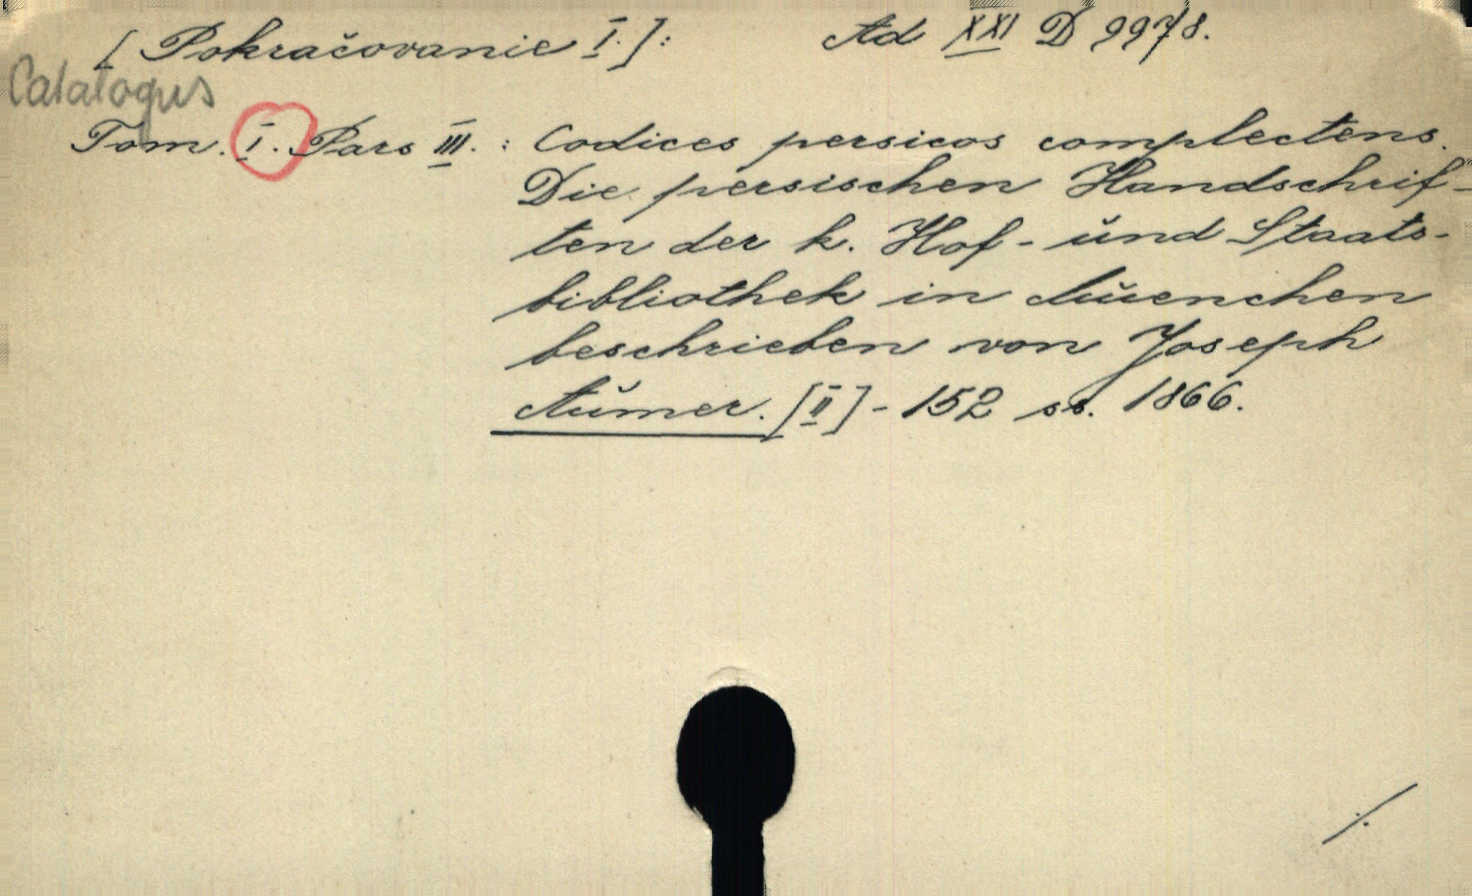 [Pokračovanie I.]: Ad XXI D 9978.
Catalogus
Tom. I. Pars III. : Codices persicos complectens.
Die persischen Handschrif-
ten der k. Hof- und Staats-
bibliothek in Muenchen
beschrieben von Joseph
Aumer. [II] - 152 ss. 1866.
./.